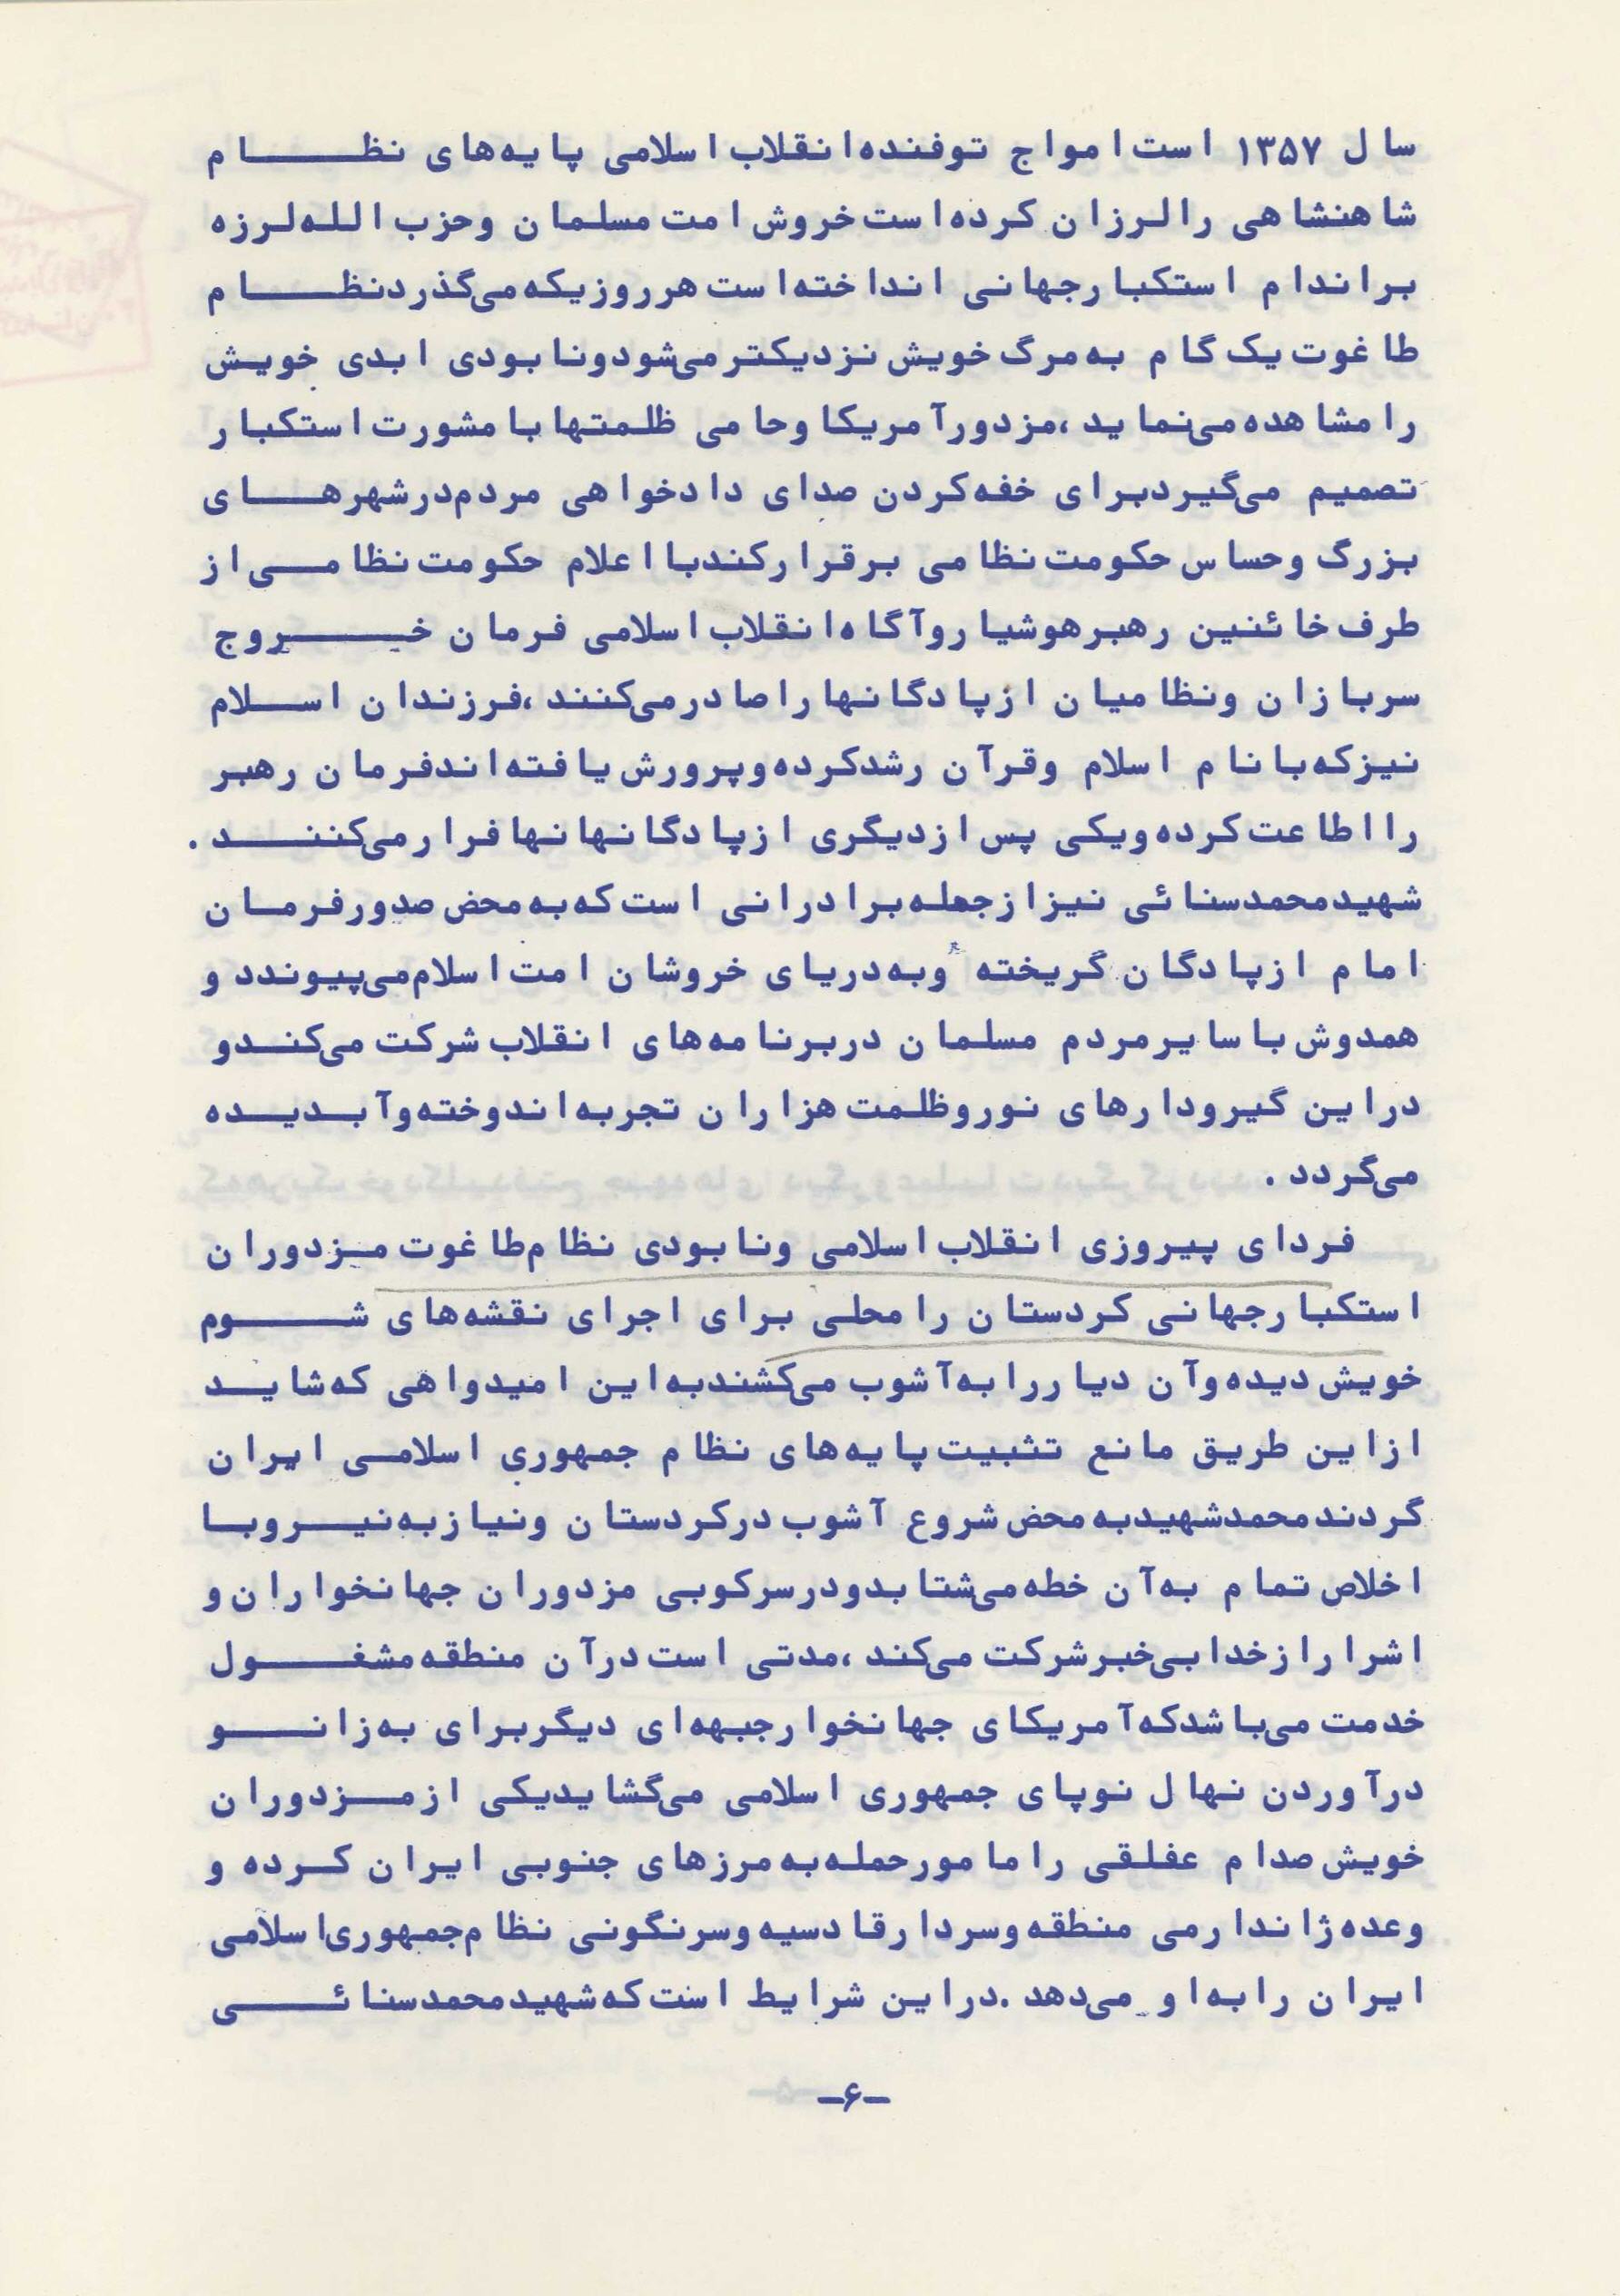 سال ۱۳۵۷ است امواج توفنده انقلاب اسلامی پایه‌های نظام
شاهنشاهی را لرزان کرده است خروش امت مسلمان وحزب الله لرزه
براندام استکبار جهانی انداخته است هر روزیکه می‌گذرد نظام
طاغوت یک گام به مرگ خویش نزدیکتر می‌شود و نابودی ابدی خویش
را مشاهده می‌نماید ،مزدور آمریکا و حامی ظلمتها با مشورت استکبار
تصمیم می‌گیرد برای خفه کردن صدای دادخواهی مردم در شهرهای
بزرگ و حساس حکومت نظامی برقرار کند با اعلام حکومت نظامی از
طرف خائنین رهبر هوشیار و آگاه انقلاب اسلامی فرمان خروج
سربازان ونظامیان از پادگانها را صادر می‌کنند ،فرزندان اسلام
نیز که با نام اسلام وقرآن رشد کرده و پرورش یافته‌اند فرمان رهبر
را اطاعت کرده و یکی پس از دیگری از پادگانهانها فرار می‌کنند .
شهید محمد سنائی نیز از جمله برادرانی است که به محض صدور فرمان
امام از پادگان گریخته و به دریای خروشان امت اسلام می‌پیوندد و
همدوش با سایر مردم مسلمان در برنامه‌های انقلاب شرکت می‌کند و
در این گیرودارهای نور و ظلمت هزاران تجربه اندوخته و آبدیده
می‌گردد .
فردای پیروزی انقلاب اسلامی ونابودی نظام طاغوت مزدوران
استکبار جهانی کردستان را محلی برای اجرای نقشه‌های شوم
خویش دیده و آن دیار را به آشوب می‌کشند به این امید واهی که شاید
از این طریق مانع تثبیت پایه‌های نظام جمهوری اسلامی ایران
گردند محمد شهید به محض شروع آشوب در کردستان ونیاز به نیرو با
اخلاص تمام به آن خطه می‌شتابد و در سرکوبی مزدوران جهانخواران و
اشرار از خدا بی‌خبر شرکت می‌کند ،مدتی است در آن منطقه مشغول
خدمت می‌باشد که آمریکای جهانخوار جبهه‌ای دیگر برای به زانو
در آوردن نهال نوپای جمهوری اسلامی می‌گشاید یکی از مزدوران
خویش صدام عفلقی را مامور حمله به مرزهای جنوبی ایران کرده و
وعده ژاندارمی منطقه و سردار قادسیه و سرنگونی نظام جمهوری اسلامی
ایران را به او می‌دهد .در این شرایط است که شهید محمد سنائی
-۶-